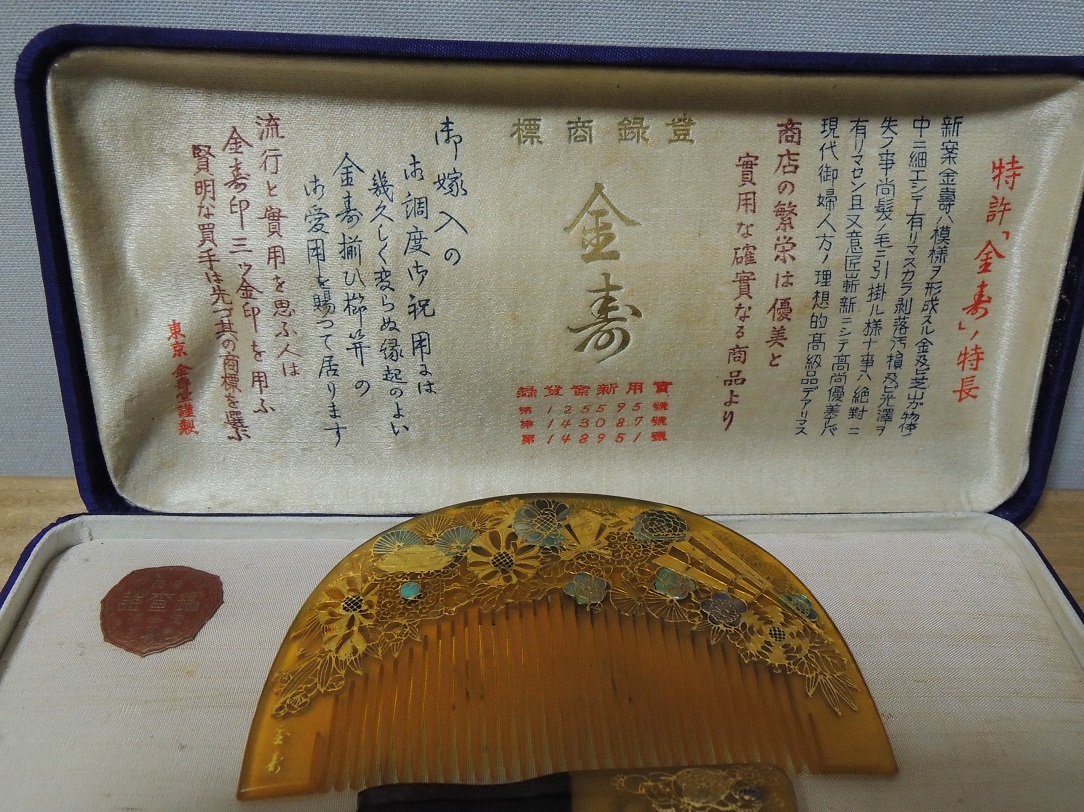 特許「金寿」ノ特長
新案金壽ハ模様ヲ形成スル金及ビ芝山ガ物体ノ
中ニ細工シテ有リマスカラ剥落汚損及ビ光澤ヲ
失フ事尚髪ノ毛ニ引掛ル様ナ事ハ絶對ニ
有リマセン且又意匠嶄新ニシテ高尚優美ナレバ
現代御婦人方ノ理想的髙級品デアリマス
商店の繁栄は優美と
實用な確實なる商品より
登録商標
金寿
實用新案登録
第125595號
第143087號
第148951號
御嫁入の
御調度御祝用には
幾久しく変らぬ縁起のよい
金寿揃ひ櫛笄の
御愛用を賜つて居ります
流行と實用を思ふ人は
金寿印三ツ金印を用ふ
賢明な買手は先づ其の商標を選ぶ
東京金壽堂謹製
金寿